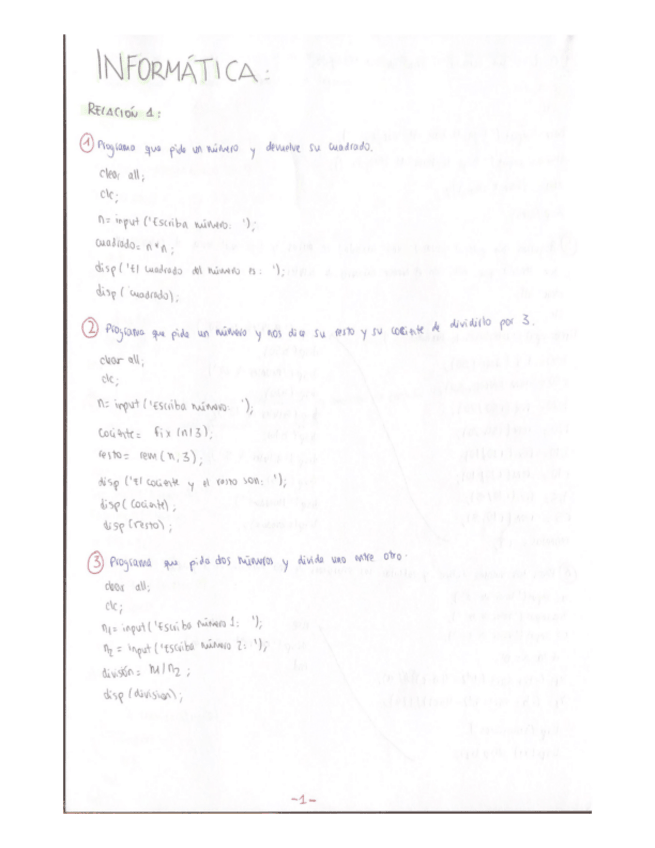 INFORMÁTICA:
RELACIÓN 1:
① Programa que pida un número y devuelve su cuadrado.
clear all;
clc;
n= input ('Escriba número: ');
cuadrado= n*n;
disp ('El cuadrado del número es: ');
disp (cuadrado);
② Programa que pida un número y nos dice su resto y su cociente de dividirlo por 3.
clear all;
clc;
n= input ('Escriba número: ');
cociente= fix (n/3);
resto= rem(n,3);
disp ('El cociente y el resto son: ');
disp( cociente);
disp (resto);
③ Programa que pida dos números y divida uno entre otro.
clear all;
clc;
n1= input ('Escriba número 1: ');
n2= input ('Escriba número 2: ');
división= n1/n2;
disp (division);
-1-